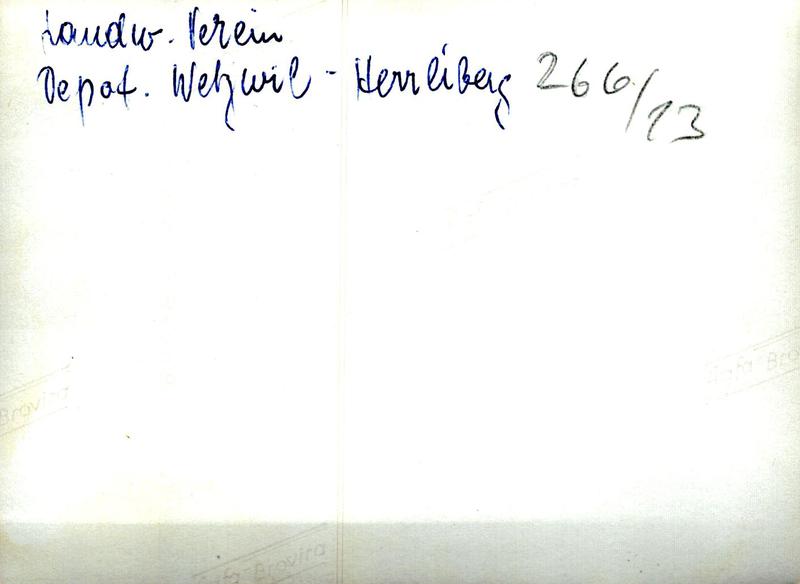 Landw. Verein
Depot. Wetzwil - Herrliberg 266/13
Brovira
Agfa-Brovira
Agfa-Brovira